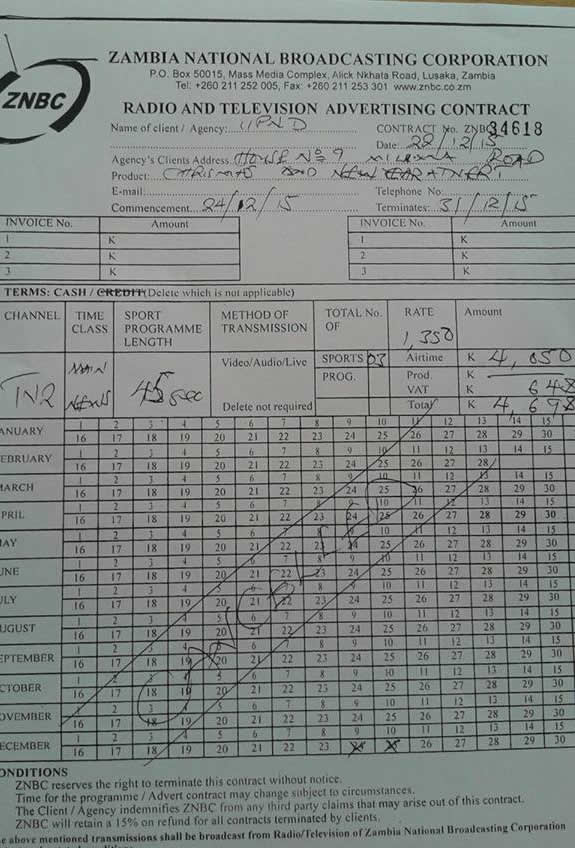 ZNBC
ZAMBIA NATIONAL BROADCASTING CORPORATION
P.O. Box 50015, Mass Media Complex, Alick Nkhata Road, Lusaka, Zambia
Tel: +260 211 252 005, Fax: +260 211 253 301 www.znbc.co.zm
RADIO AND TELEVISION ADVERTISING CONTRACT
Name of client / Agency: UPND CONTRACT No. ZNBC 34618
Date: 22/12/15
Agency's Clients Address HOUSE No 9 ROAD
Product: CHRISMAS AND NEW YEAR ADVERT
E-mail: Telephone No:
Commencement 24/12/15 Terminates: 31/12/15
INVOICE No. Amount INVOICE No. Amount
1 K 1 K
2 K 2 K
3 K 3 K
TERMS: CASH / CREDIT (Delete which is not applicable)
CHANNEL TIME CLASS SPORT PROGRAMME LENGTH METHOD OF TRANSMISSION TOTAL No. OF RATE 1,350 Amount
TV2 MAIN NEWS 45 sec Video/Audio/Live SPORTS 03 Airtime K 4,050
PROG. Prod. K
VAT K 648
Delete not required Total K 4,698
JANUARY 1 2 3 4 5 6 7 8 9 10 11 12 13 14 15
16 17 18 19 20 21 22 23 24 25 26 27 28 29 30
FEBRUARY 1 2 3 4 5 6 7 8 9 10 11 12 13 14 15
16 17 18 19 20 21 22 23 24 25 26 27 28
MARCH 1 2 3 4 5 6 7 8 9 10 11 12 13 14 15
16 17 18 19 20 21 22 23 24 25 26 27 28 29 30
APRIL 1 2 3 4 5 6 7 8 9 10 11 12 13 14 15
16 17 18 19 20 21 22 23 24 25 26 27 28 29 30
MAY 1 2 3 4 5 6 7 8 9 10 11 12 13 14 15
16 17 18 19 20 21 22 23 24 25 26 27 28 29 30
JUNE 1 2 3 4 5 6 7 8 9 10 11 12 13 14 15
16 17 18 19 20 21 22 23 24 25 26 27 28 29 30
JULY 1 2 3 4 5 6 7 8 9 10 11 12 13 14 15
16 17 18 19 20 21 22 23 24 25 26 27 28 29 30
AUGUST 1 2 3 4 5 6 7 8 9 10 11 12 13 14 15
16 17 18 19 20 21 22 23 24 25 26 27 28 29 30
SEPTEMBER 1 2 3 4 5 6 7 8 9 10 11 12 13 14 15
16 17 18 19 20 21 22 23 24 25 26 27 28 29 30
OCTOBER 1 2 3 4 5 6 7 8 9 10 11 12 13 14 15
16 17 18 19 20 21 22 23 24 25 26 27 28 29 30
NOVEMBER 1 2 3 4 5 6 7 8 9 10 11 12 13 14 15
16 17 18 19 20 21 22 23 24 25 26 27 28 29 30
DECEMBER 1 2 3 4 5 6 7 8 9 10 11 12 13 14 15
16 17 18 19 20 21 22 23 26 27 28 29 30
CONDITIONS
ZNBC reserves the right to terminate this contract without notice.
Time for the programme / Advert contract may change subject to circumstances.
The Client / Agency indemnifies ZNBC from any third party claims that may arise out of this contract.
ZNBC will retain a 15% on refund for all contracts terminated by clients.
The above mentioned transmissions shall be broadcast from Radio/Television of Zambia National Broadcasting Corporation